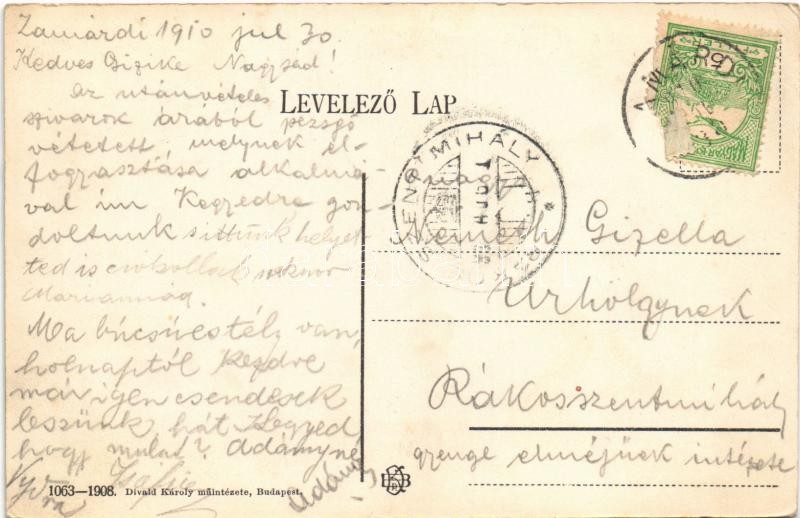 Zamárdi 1910 jul 30.
Kedves Gizike Nagysád!
Az utánvételes
szivarok árából pezsgő
vétetett, melynek el-
fogyasztása alkalmá-
val im Kegyedre gon-
doltunk sittünk helyet-
ted is csokollak
Mariannád.
Ma búcsúestély van,
holnaptól kezdve
már igen csendesek
leszünk, hát Kegyed
hogy mulat? Adámyné
LEVELEZŐ LAP
SZENTMIHÁLY
nagys.
Németh Gizella
Urhölgynek
Rákosszentmihály
gyenge elméjüek intézete
1063—1908. Divald Károly műintézete, Budapest.